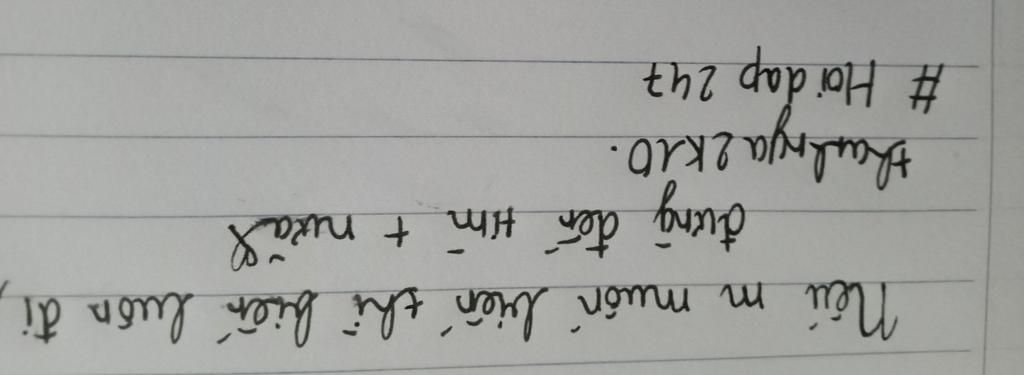 Nếu m muốn biến thì biến luôn đi,
đừng đến tìm t nữa
thanhnya2k10.
# Hoidap 247